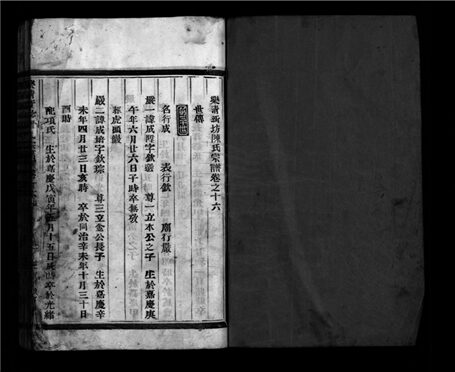 樂清新坊陳氏宗譜卷之十六
世傳
名行成 表行欽 廟行嚴
嚴一諱成陞字欽 尊一立本公之子 生於嘉慶庚
午年六月廿六日子時卒無攷
嚴二諱成培字欽琮 尊三立富公長子 生於嘉慶辛
未年四月廿三日亥時 卒於同治辛未年十月三十日
酉時
配項氏 生於嘉慶戊寅年 月十五日 時卒於光緒